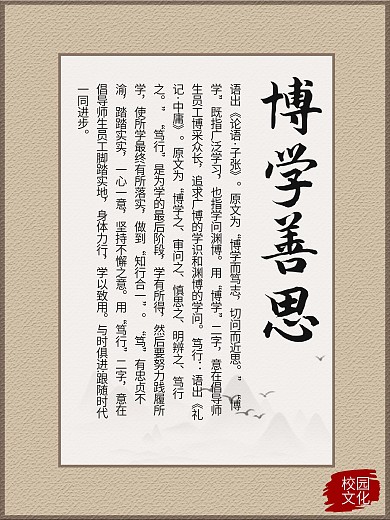 博学善思
语出《论语·子张》。原文为“博学而笃志，切问而近思。”“博
学”既指广泛学习，也指学问渊博。用“博学”二字，意在倡导师
生员工博采众长，追求广博的学识和渊博的学问。笃行：语出《礼
记·中庸》。原文为“博学之、审问之、慎思之、明辨之、笃行
之。”“笃行”是为学的最后阶段，学有所得，然后要努力践履所
学，使所学最终有所落实，做到“知行合一”。“笃”有忠贞不
渝，踏踏实实，一心一意，坚持不懈之意。用“笃行”二字，意在
倡导师生员工脚踏实地，身体力行，学以致用。与时俱进，跟随时代
一同进步。
校园
文化